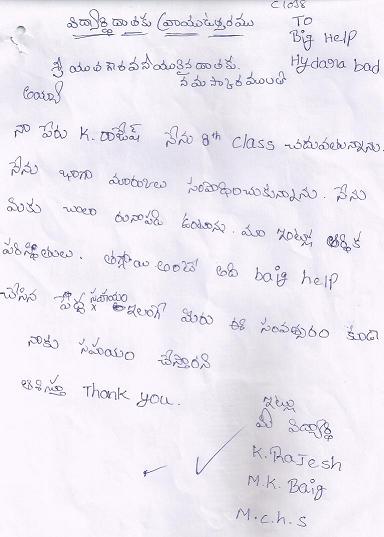 C1038
విద్యార్థి దాతకు వ్రాయు ఉత్తరము
TO
Big Help
Hydara bad
శ్రీ యుత గౌరవనీయులైన దాతకు.
నమస్కారములతో
అయ్యా
నా పేరు K. రాజేష్ నేను 8th class చదువుతున్నాను.
నేను బాగా మారుకులు సంపాదించుకున్నాను. నేను
మీకు చాలా రునాపడి ఉంటాను. మా ఇంట్లు ఆర్థిక
పరిస్థితులు. అంటే అది baig help
చేసిన పెద్ద సహాయం ఇలాగే మీరు ఈ సంవత్సరం కూడా
నాకు సహయం చేస్తారని
ఆశిస్తూ Thank you.
ఇట్లు
మీ విద్యార్థి
K. RaJesh
M.K. Baig
M.c.h.s